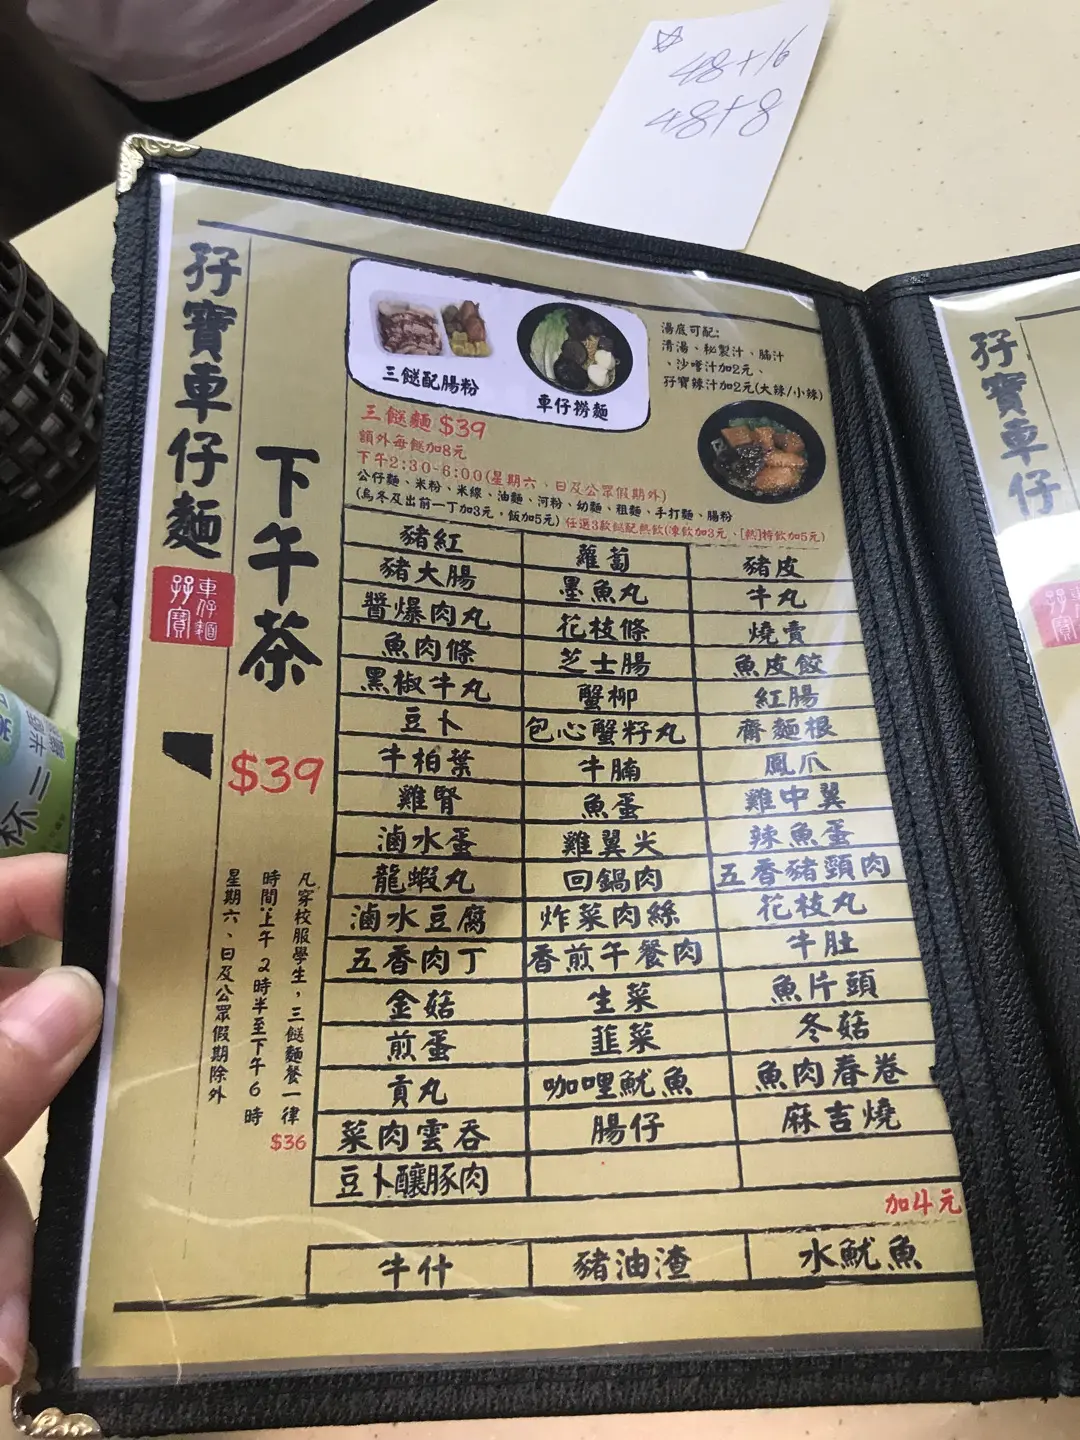 48+16
48+8
孖寶車仔麵
孖寶
車仔麵
下午茶
$39
凡穿校服學生，三餸麵餐一律
時間:上午 2時半至下午6時
星期六、日及公眾假期除外
$36
三餸配腸粉
車仔撈麵
湯底可配:
清湯、秘製汁、腩汁
、沙嗲汁加2元、
孖寶辣汁加2元(大辣/小辣)
三餸麵 $39
額外每餸加8元
下午2:30-6:00(星期六、日及公眾假期外)
公仔麵、米粉、米線、油麵、河粉、幼麵、粗麵、手打麵、腸粉
(烏冬及出前一丁加3元，飯加5元) 任選3款餸配熱飲(凍飲加3元、[熱]特飲加5元)
豬紅 蘿蔔 豬皮
豬大腸 墨魚丸 牛丸
醬爆肉丸 花枝條 燒賣
魚肉條 芝士腸 魚皮餃
黑椒牛丸 蟹柳 紅腸
豆卜 包心蟹籽丸 齋麵根
牛柏葉 牛腩 鳳爪
雞腎 魚蛋 雞中翼
滷水蛋 雞翼尖 辣魚蛋
龍蝦丸 回鍋肉 五香豬頸肉
滷水豆腐 炸菜肉絲 花枝丸
五香肉丁 香煎午餐肉 牛肚
金菇 生菜 魚片頭
煎蛋 韮菜 冬菇
貢丸 咖哩魷魚 魚肉春卷
菜肉雲吞 腸仔 麻吉燒
豆卜釀豚肉
加4元
牛什 豬油渣 水魷魚
孖寶車仔